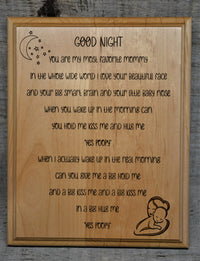 GOOD NIGHT
YOU ARE MY MOST FAVORITE MOMMY
IN THE WHOLE WIDE WORLD I LOVE YOUR BEAUTIFUL FACE
AND YOUR BIG SMART BRAIN AND YOUR LITTLE BABY NOSE
WHEN YOU WAKE UP IN THE MORNING CAN
YOU HOLD ME KISS ME AND HUG ME
"YES POOPY"
WHEN I ACTUALLY WAKE UP IN THE REAL MORNING
CAN YOU GIVE ME A BIG HOLD ME
AND A BIG KISS ME AND A BIG KISS ME
IN A BIG HUG ME
"YES POOPY"